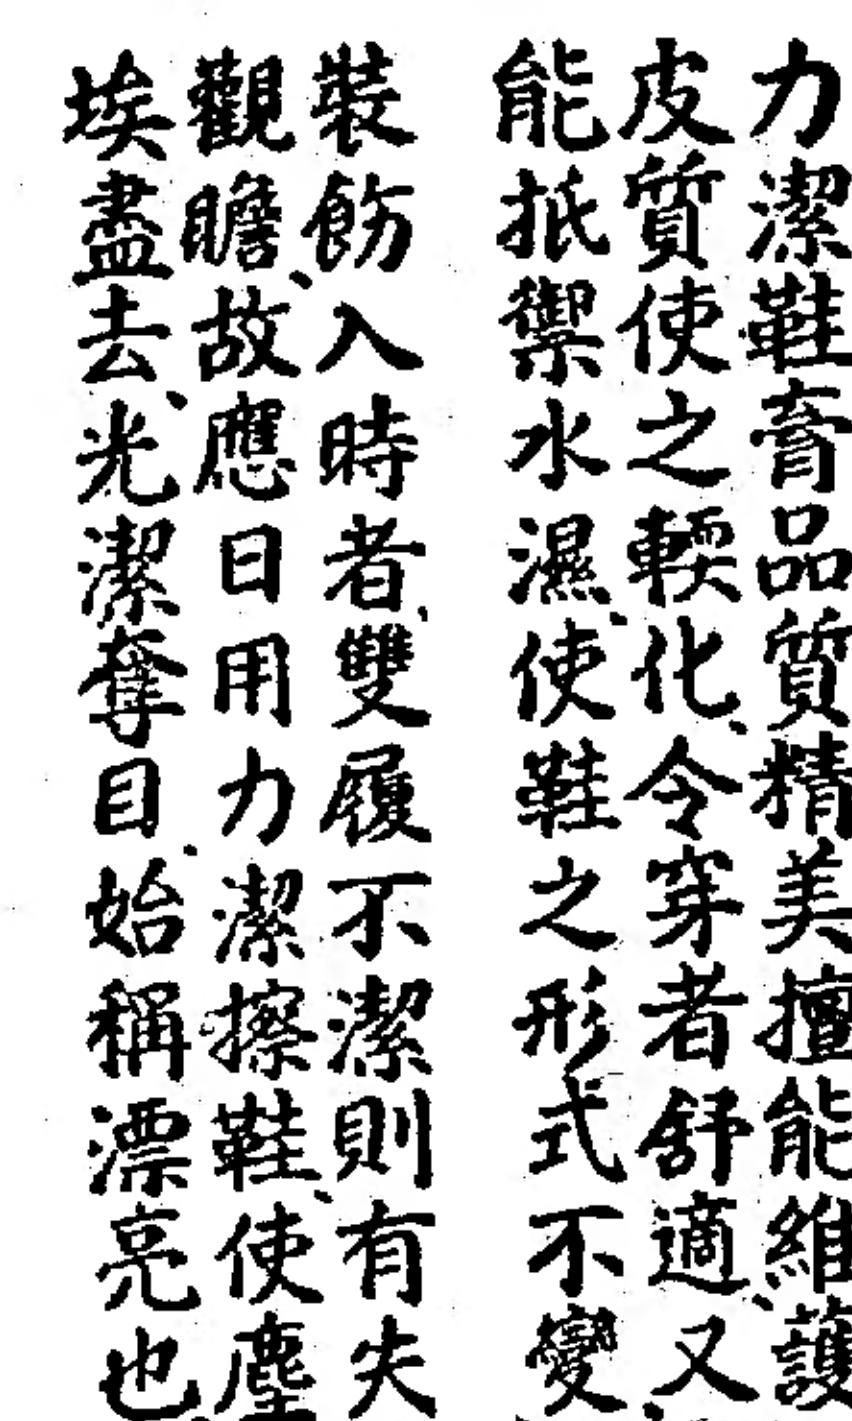 力潔鞋膏品質精美擅能維護
皮質使之輭化、令穿者舒適、又
能抵禦水濕、使鞋之形式不變
裝飭入時者、雙履不潔則有失
觀瞻、故應日用力潔擦鞋、使塵
埃盡去、光潔奪目、始稱漂亮也